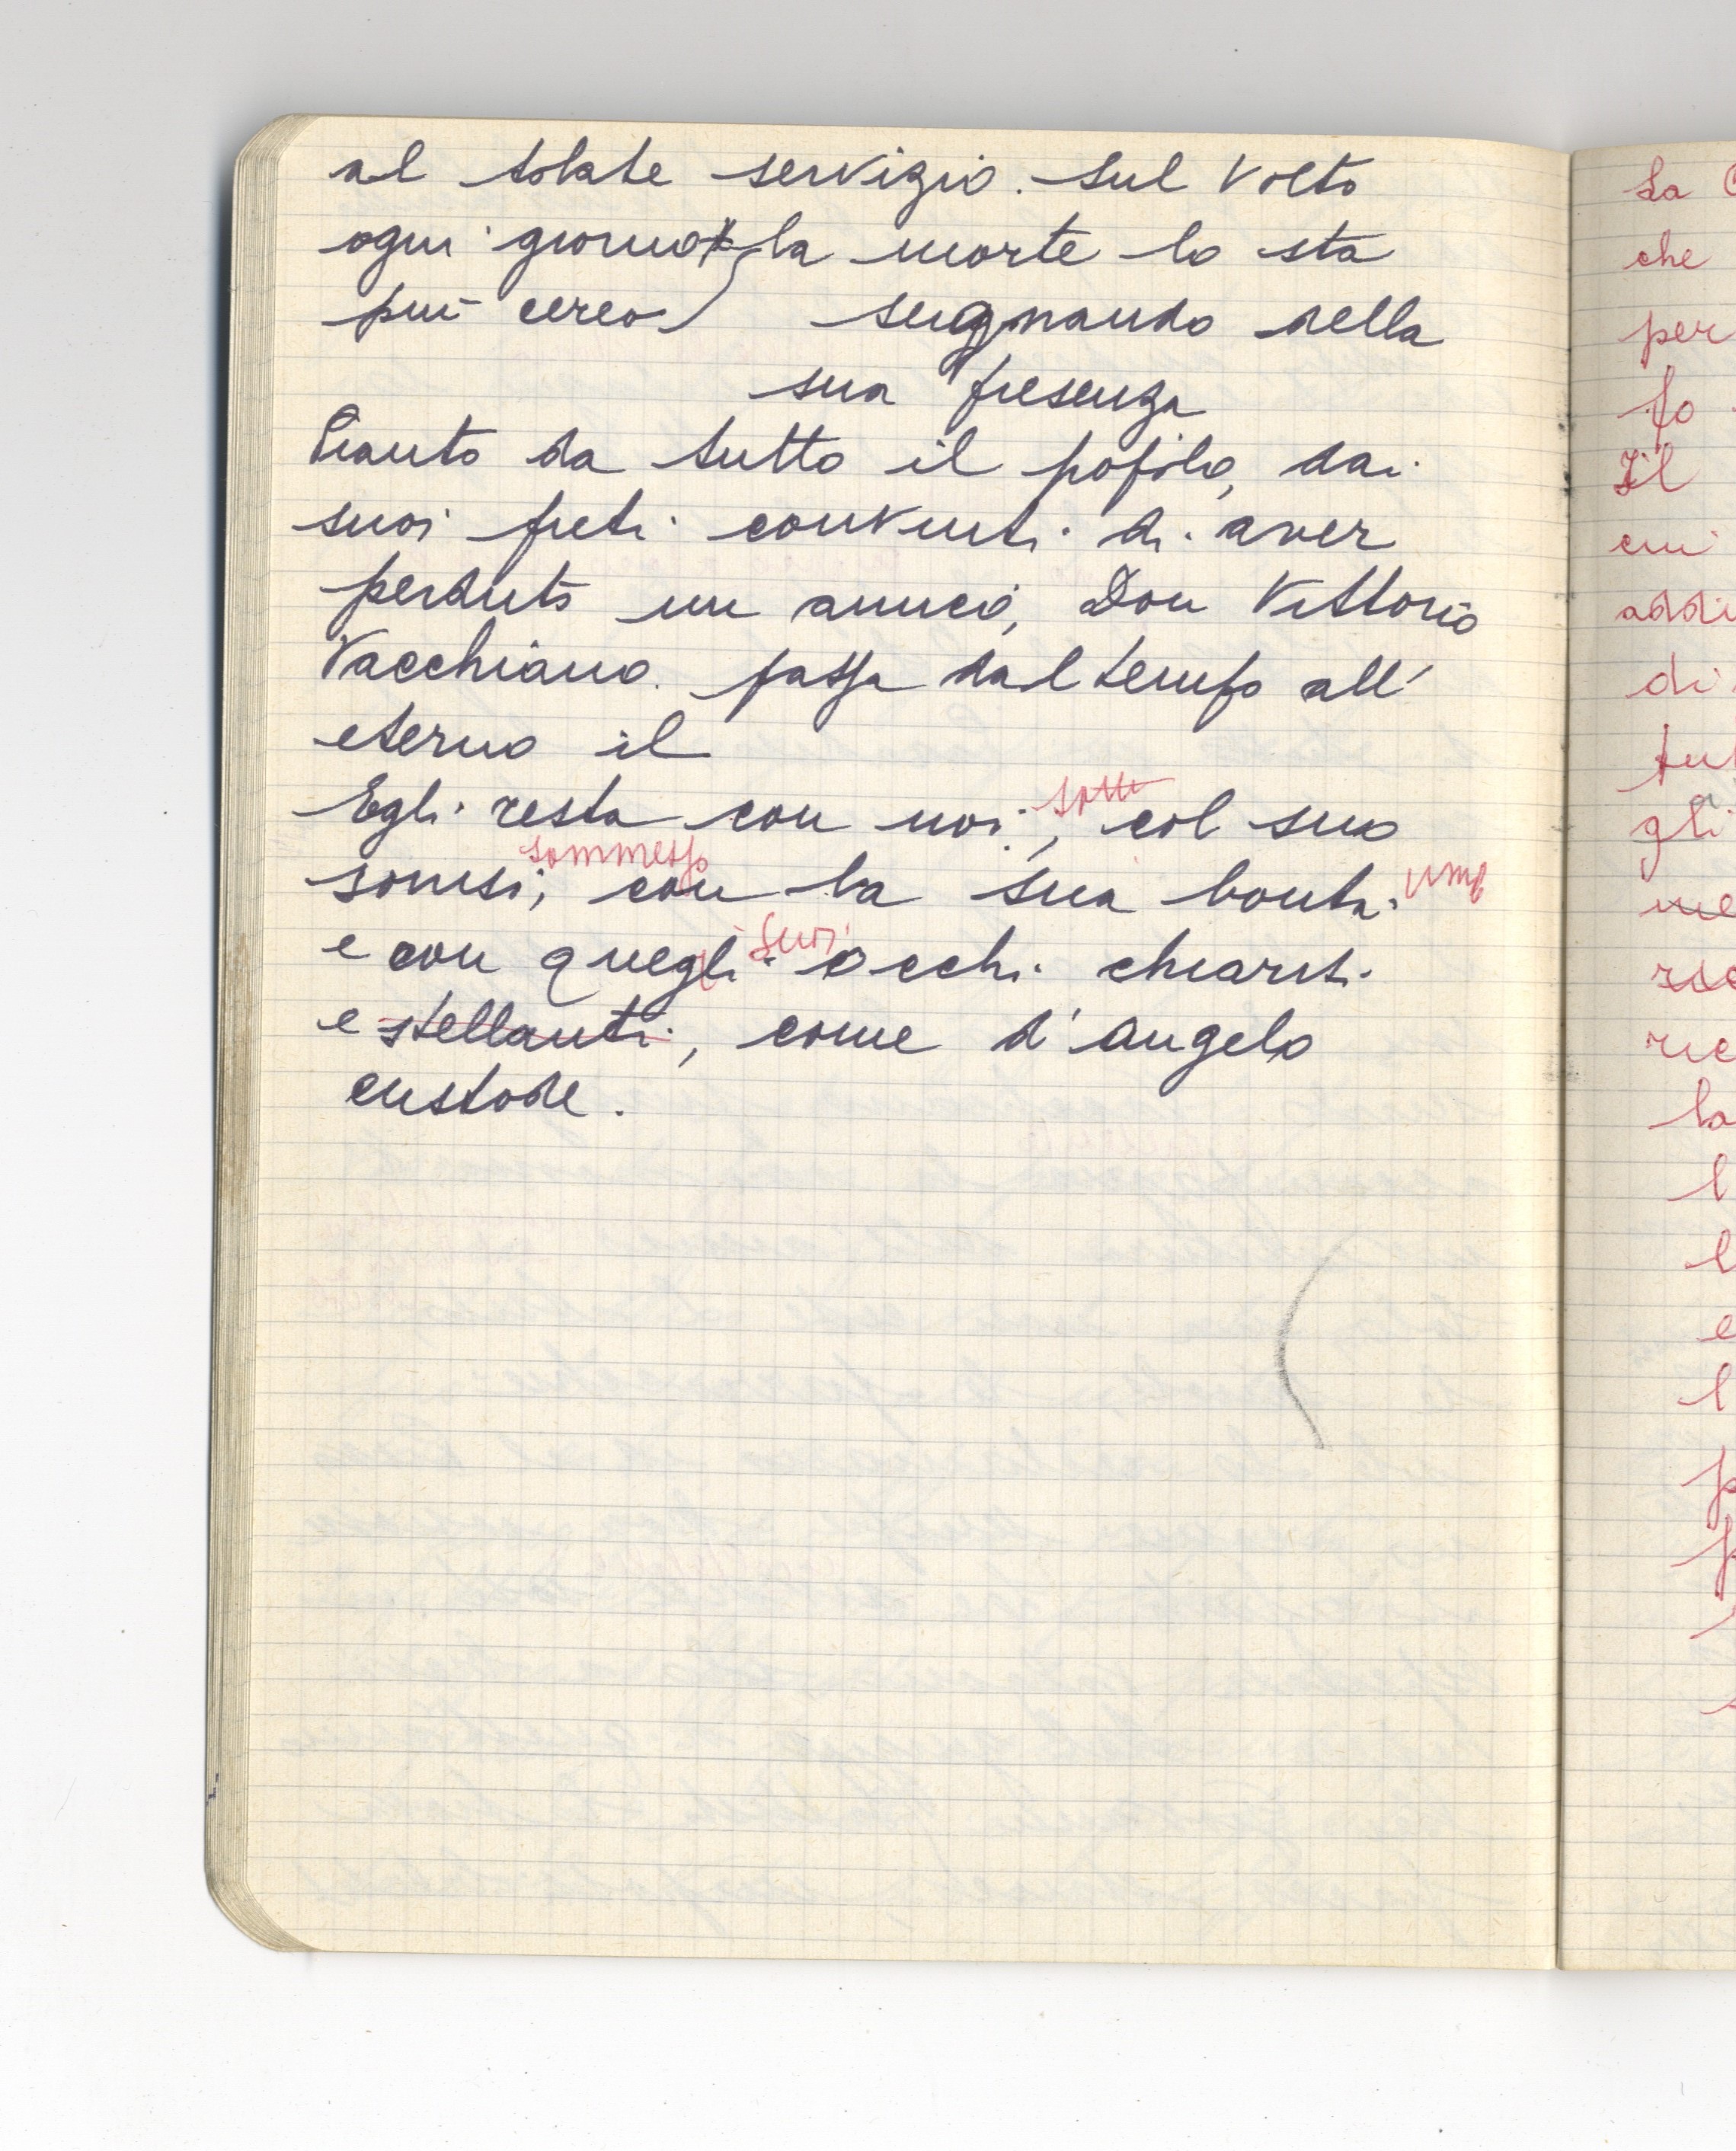 al solate servizio. Sul volto
ogni giorno la morte lo sta
più cereo segnando della
sua presenza
Pianto da tutto il popolo, dai
suoi preti convinti di aver
perduto un amico, Don Vittorio
Vacchiano. passa dal tempo all'
eterno il
sotto
Egli resta con noi, col suo
sommesso
sorriso, con la sua bontà umo
suoi
e con quegli occhi chiari
e stellanti, come d'angelo
custode.
La
che
per
fo
Il
cui
addi
di
tut
gli
me
ric
la
l
e
l
p
p